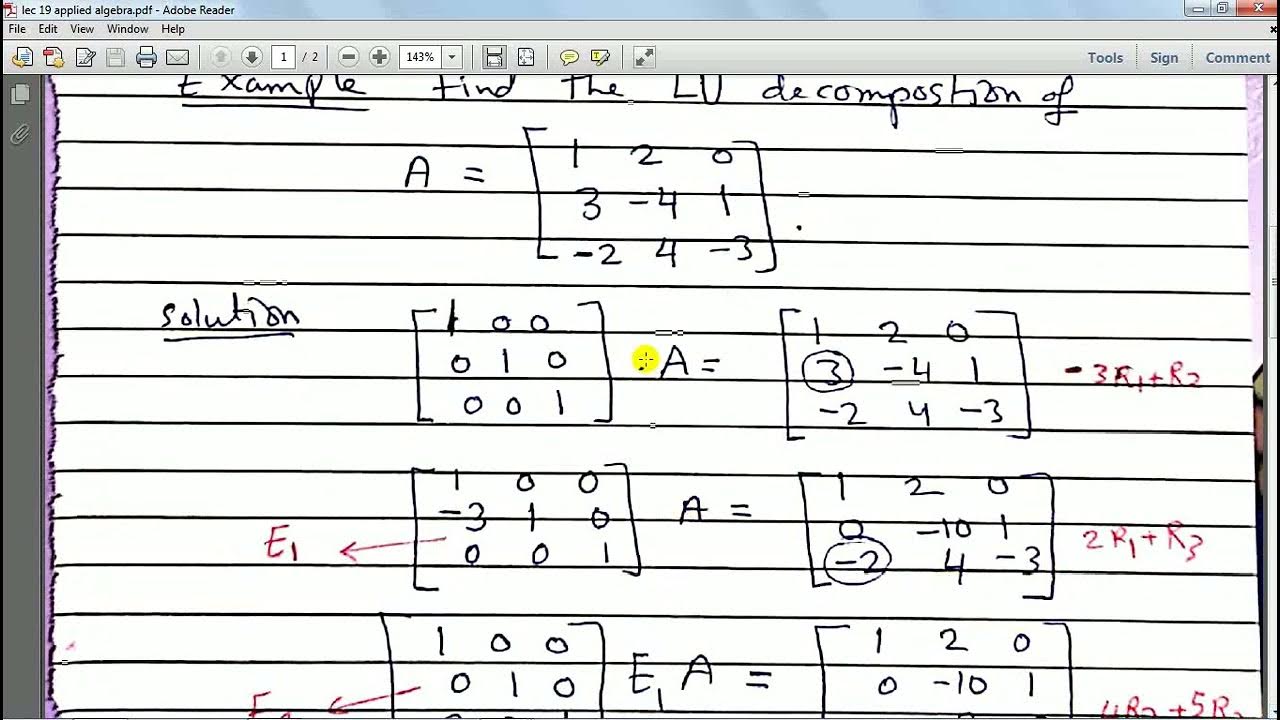 lec 19 applied algebra.pdf - Adobe Reader
File Edit View Window Help
1 / 2 143% Tools Sign Comment
Example find the LU decompostion of
A = [ 1 2 0
3 -4 1
-2 4 -3 ] .
solution
[ 1 0 0
0 1 0
0 0 1 ] A = [ 1 2 0
3 -4 1
-2 4 -3 ] -3R1+R2
[ 1 0 0
-3 1 0
0 0 1 ] A = [ 1 2 0
0 -10 1
-2 4 -3 ] 2R1+R3
E1
[ 1 0 0
0 1 0 E1 A = [ 1 2 0
0 -10 1